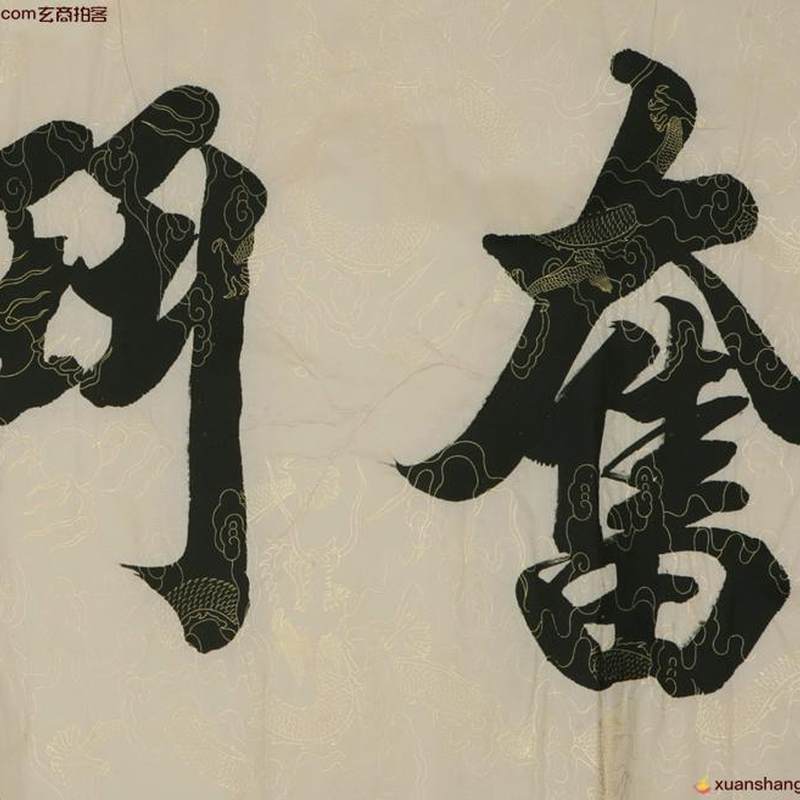 com玄商拍客
奮
xuanshang